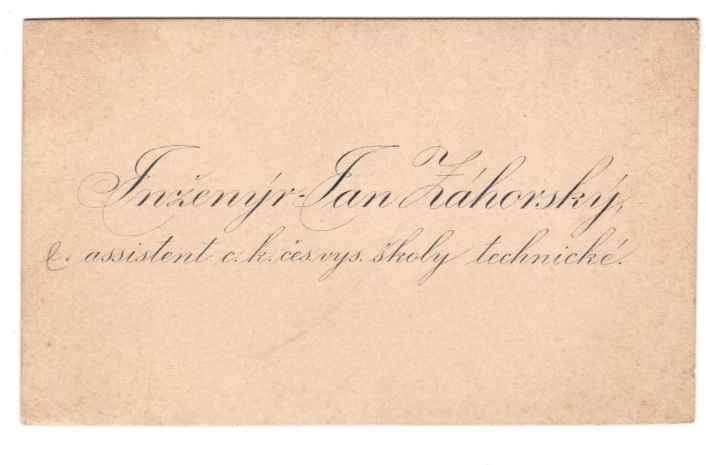 Inženýr Jan Záhorský,
assistent c. k. čes. vys. školy technické.